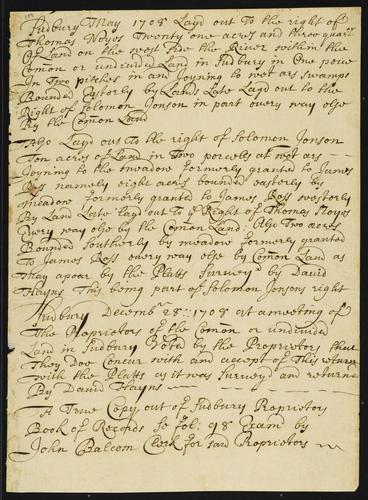 Sudbury May 1708 Layd out to the right of
Thomas Noyes Twenty one acres and three quar
Of Land on the west side the River within the
Comon or undivided Land in Sudbury in One peice
In Two pitches in and Joyning to wet ars swamps
Bounded Easterly by Lands Late Layd out to the
Right of Solomon Jonson in part every way else
By the Comon Land
Also Layd out to the right of Solomon Jonson
Ten acres of Land in Two parcels at wet ars
Joyning to the meadow formerly granted to James
Ross namely eight acres bounded easterly by
meadow formerly granted to James Ross westerly
By Land Late layd out to ye Right of Thomas Noyes
Every way else by the Comon Land Also Two acres
Bounded Southerly by meadow formerly granted
To James Ross every way else by Comon Land as
May apear by the Platts Survey'd by David
Hayns This being part of Solomon Jonsons right
Sudbury Decembr 28:: 1708 at a meeting of
The Propriators of the Comon or undivided
Land in Sudbury Voted by the Propriators that
They Doe Concur with and accept of This return
with the Platts as it was Survey'd and returned
By David Hayns
A True Copy out of Sudbury Propriators
Book of Records Se fol: 98 Exam'd by
John Balcom Clerk for said Propriators